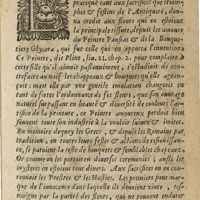 pratiqué tant aux sacrifices que triom-
phes & festins de l'Antiquité, don-
na credit aux fleurs qui en estoient
la principale estoffe, depuis les amours
du Peintre Pausias & de la Bouque-
tiere Glycera, qui fut celle qui en apporta l'invention
Ce Peintre, dit Pline, liu. 21. chap. 2. pour complaire à
cette fille qu'il aimoit passionnément, s'estudioit de con-
trefaire au naïf les chappeaux & bouquets qu'elle agen-
çoit: mais elle par vne gentille emulation changeoit en
tant de sortes l'ordonnance de ses fleurs, que le naturel
surpassant en beauté & diversité de couleurs l'arti-
fice de la peinture, ce Peintre amoureux perdoit bien
souvent toute son industrie à la vouloir suivre & imiter.
En memoire dequoy les Grecs, & depuis les Romains par
tradition, en toutes leurs festes & actions de resioüissan-
ce, se paroient de bouquets & semblables chapeaux.
Or comme on les portoit en diverses ceremonies, aussi les
mysteres en estoient divers. Aux sacrifices on en couron-
noit les Prestres & les Hosties. Les premiers pour mar-
que de l'innocence dans laquelle ils devoient vivre, tes-
moignée par la pureté des fleurs, qui ne peuvent endurer